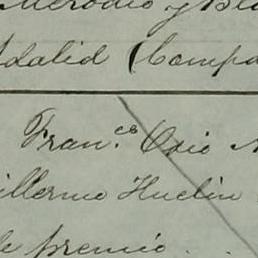 Merodio y Bla
Adalid Campo
Fran.ces Osio
illermo Huelin
de premio . .